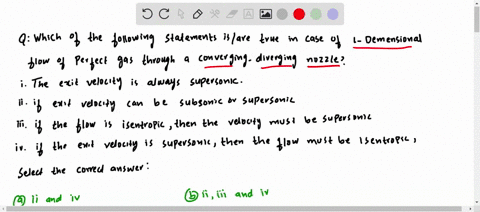 Q: Which of the following statements is/are true in case of 1-Demensional
flow of Perfect gas through a converging-diverging nozzle?
i. The exit velocity is always supersonic.
ii. if exit velocity can be subsonic or supersonic
iii. if the flow is isentropic, then the velocity must be supersonic
iv. if the exit velocity is supersonic, then the flow must be isentropic,
select the correct answer:
(a) ii and iv (b) ii, iii and iv